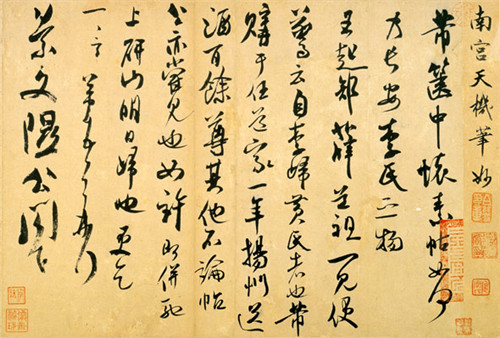 南宫天機筆妙
芾篋中懷素帖如何
乃長安李氏之物
王起部薛道祖一見便
驚云自李歸黄氏者也芾
購于任道家一年揚州送
酒百餘尊其他不論帖
公亦嘗見也如許即併馳
上研山明日歸也更乞
一言芾頓首再拜
景文隰公閣下